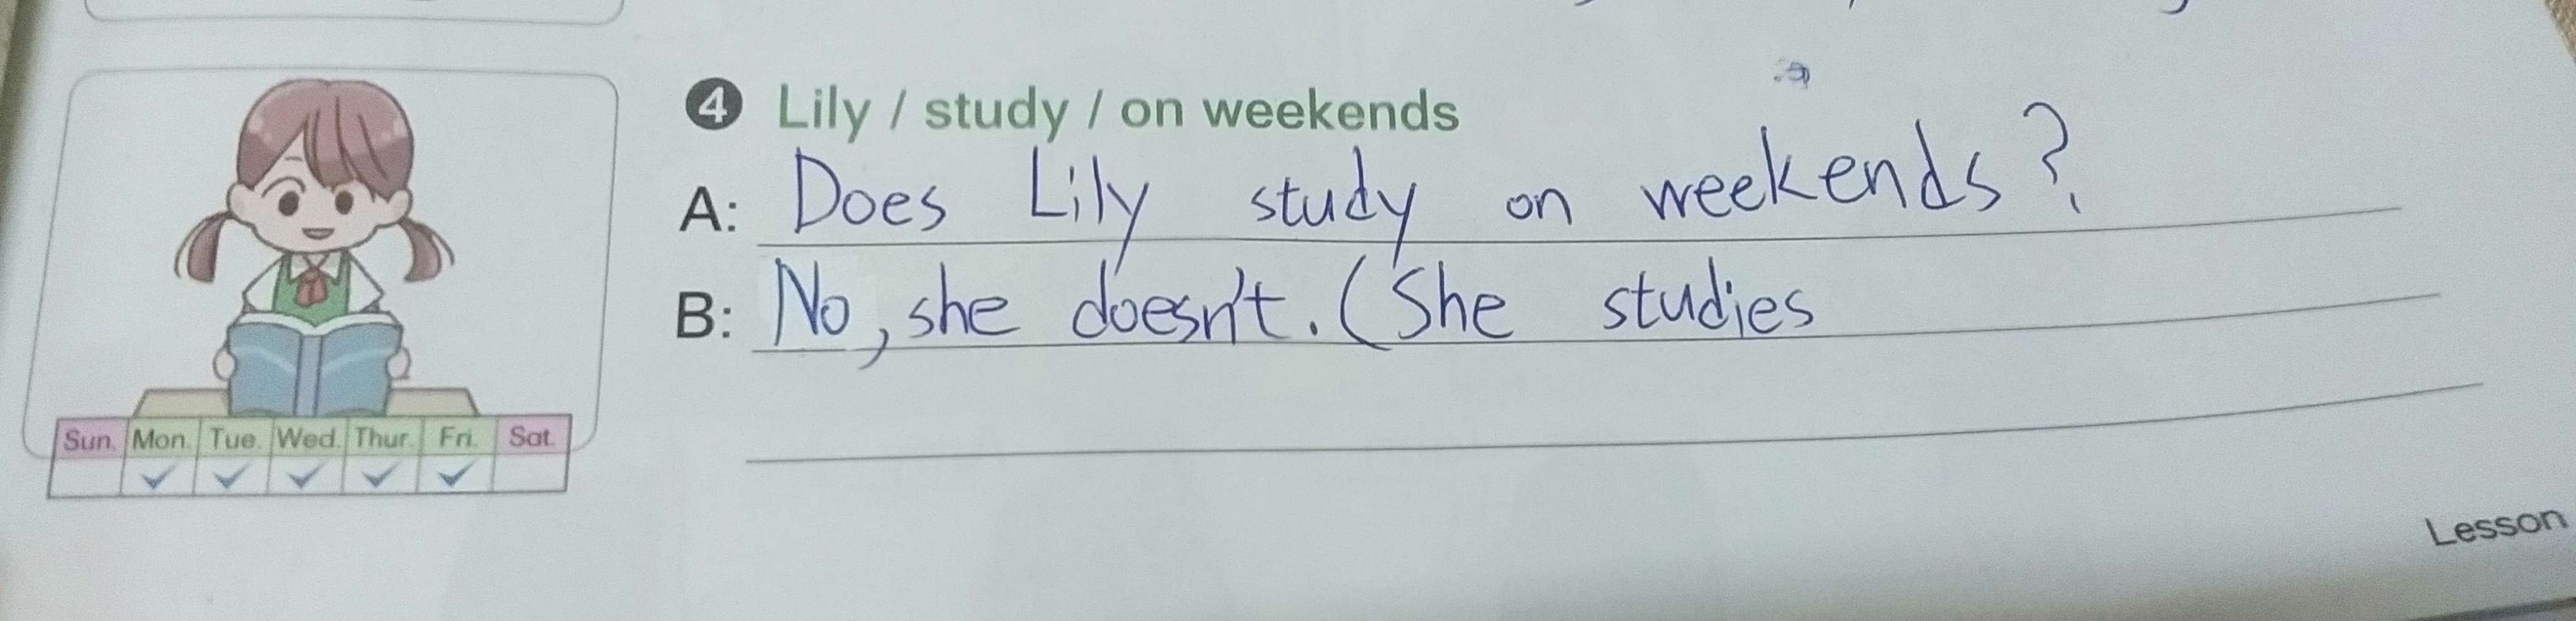 ❹ Lily / study / on weekends
A: Does Lily study on weekends?
B: No, she doesn't. (She studies
Sun. Mon. Tue. Wed. Thur. Fri. Sat.
Lesson